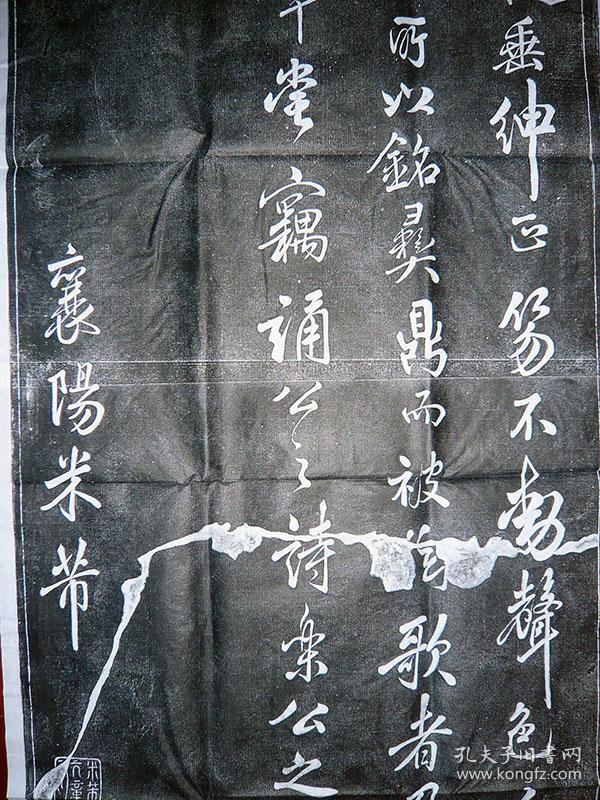 垂紳正笏不動聲色
所以銘彝鼎而被歌者
嘗竊誦公之詩樂公之
襄陽米芾
米芾
元章
孔夫子旧书网
www.kongfz.com